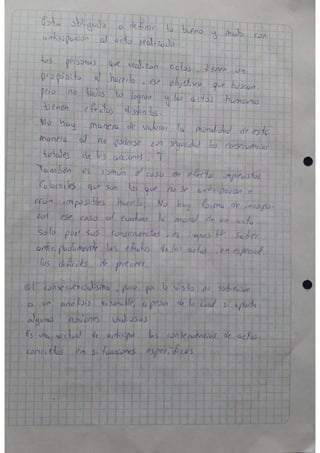 Esta obligado a definir lo bueno y malo con
anticipación al acto realizado
Las personas que realizan actos, tienen un
propósito al hacerlo, ese objetivo que buscan
pero no todos lo logran y los actos humanos
tienen efectos distintos.
No hay manera de valorar la moralidad de esta
manera al no poderse con seguridad las consecuencias
totales de las acciones.
También es común el caso de efectos imprevistos
Colaterales que son los que no se anticiparon o
eran imposibles hacerlo; No hay forma de
con ese caso al evaluar la moral de un acto
solo por sus consecuencias es saber
anticipadamente los efectos de los actos en especial
los difíciles de prever.
El consecuencialismo, pues por lo visto no sobrevive
a un análisis razonable, a pesar de lo cual si aporta
algunas nociones valiosas
Es una virtud de anticipar las consecuencias de actos
concretos en situaciones específicas